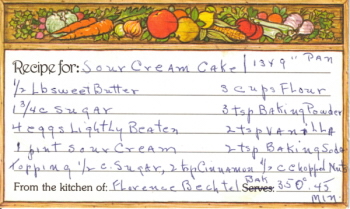 Recipe for: Sour Cream Cake 13x9" PAN
1/2 Lb sweet Butter 3 cups Flour
1 3/4 c Sugar 3 tsp Baking Powder
4 eggs Lightly Beaten 2 tsp Vanilla
1 pint sour Cream 2 tsp Baking Soda
Topping 1/2 c. Sugar, 2 tsp Cinnamon 1/2 c Chopped Nuts
From the kitchen of: Florence Bechtel Serves: Bak 350° 45 Min